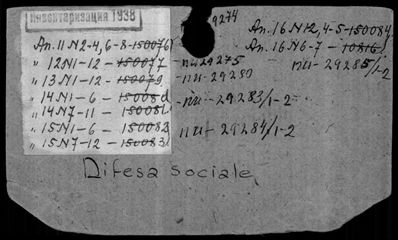 Инвентаризация 1938
9274
Ап. 11 N2-4, 6-8-150076
" 12N1-12-150077-пи29275
" 13N1-12-150079-пи-29280
" 14N1-6-150080-пи-29283/1-2
" 14N7-11-150081
" 15N1-6-150082-пи-29284/1-2
" 15N7-12-150083
Ап. 16N12, 4-5-150084
Ап. 16N6-7-10816
пи-29285/1-2
Difesa sociale